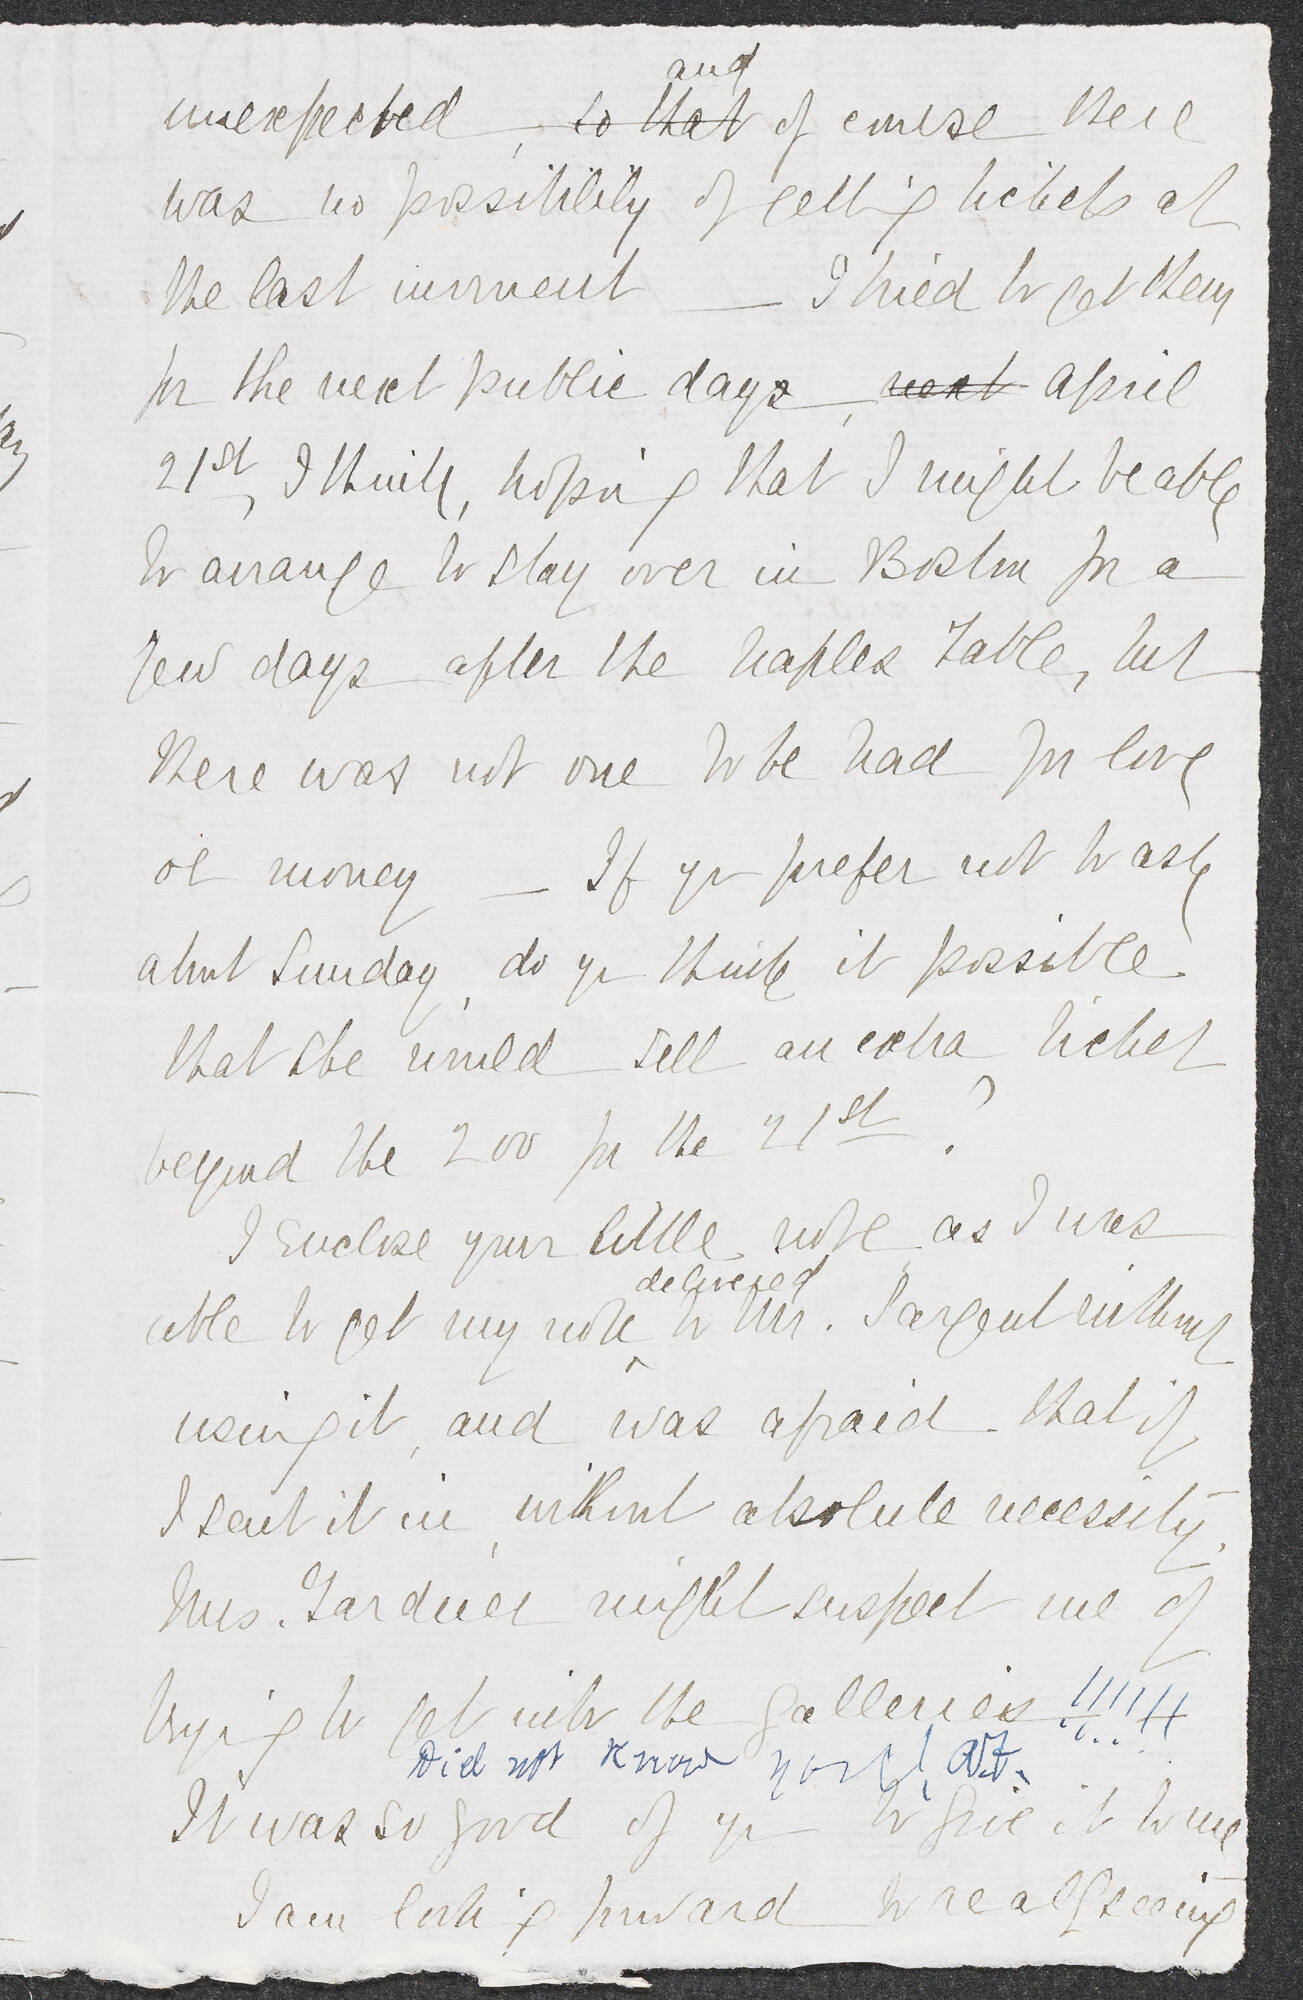 and
unexpected, so that of course there
was no possibility of getting tickets at
the last moment — I tried to get them
for the next public days, next April
21st, I think, hoping that I might be able
to arrange to stay over in Boston for a
few days after the Naples Table, but
there was not one to be had for love
or money — If you prefer not to ask
about Sunday, do you think it possible
that she would sell an extra ticket
beyond the 200 for the 21st?
I enclose your little note as I was
delivered
able to get my note ^ to Mr. Sargent without
using it, and was afraid that if
I sent it in, without absolute necessity,
Mrs. Gardner might suspect me of
trying to get into the galleries !!!!!!
Did not know
It was so good of you to give it to me
I am looking forward to really seeing